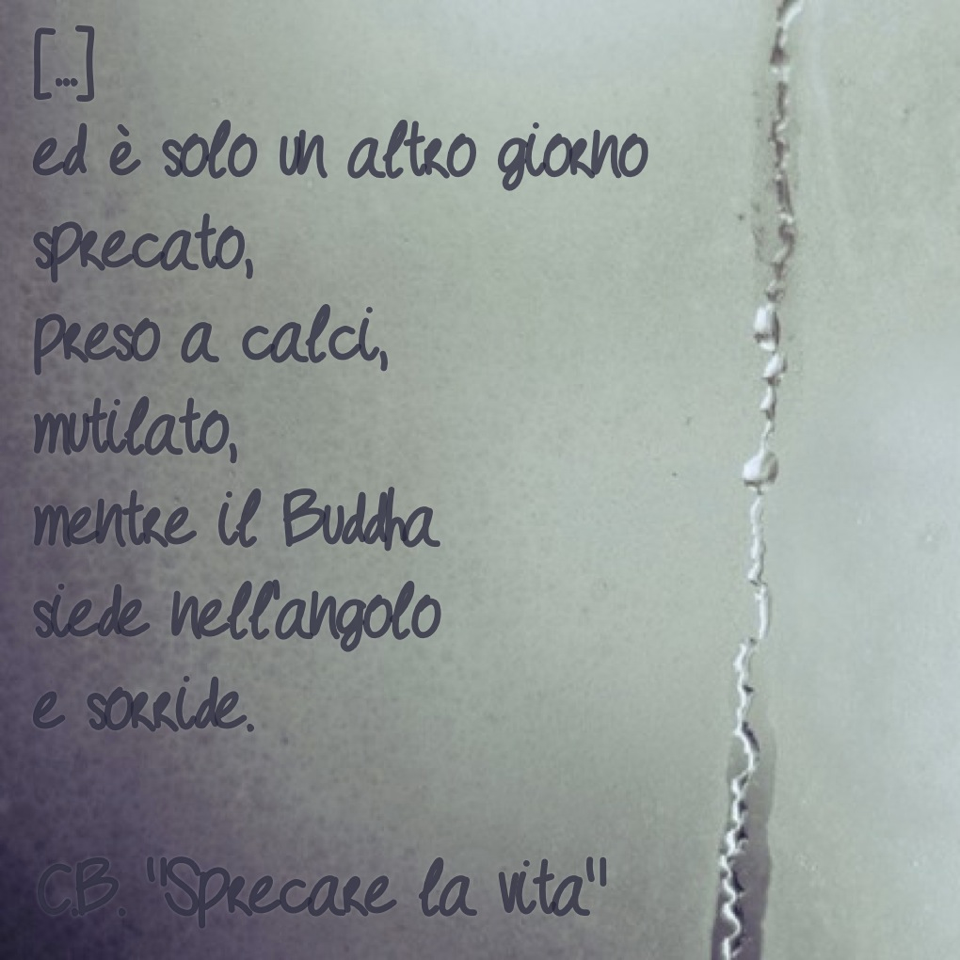 [...]
ed è solo un altro giorno
sprecato,
preso a calci,
mutilato,
mentre il Buddha
siede nell'angolo
e sorride.
C.B. "Sprecare la vita"